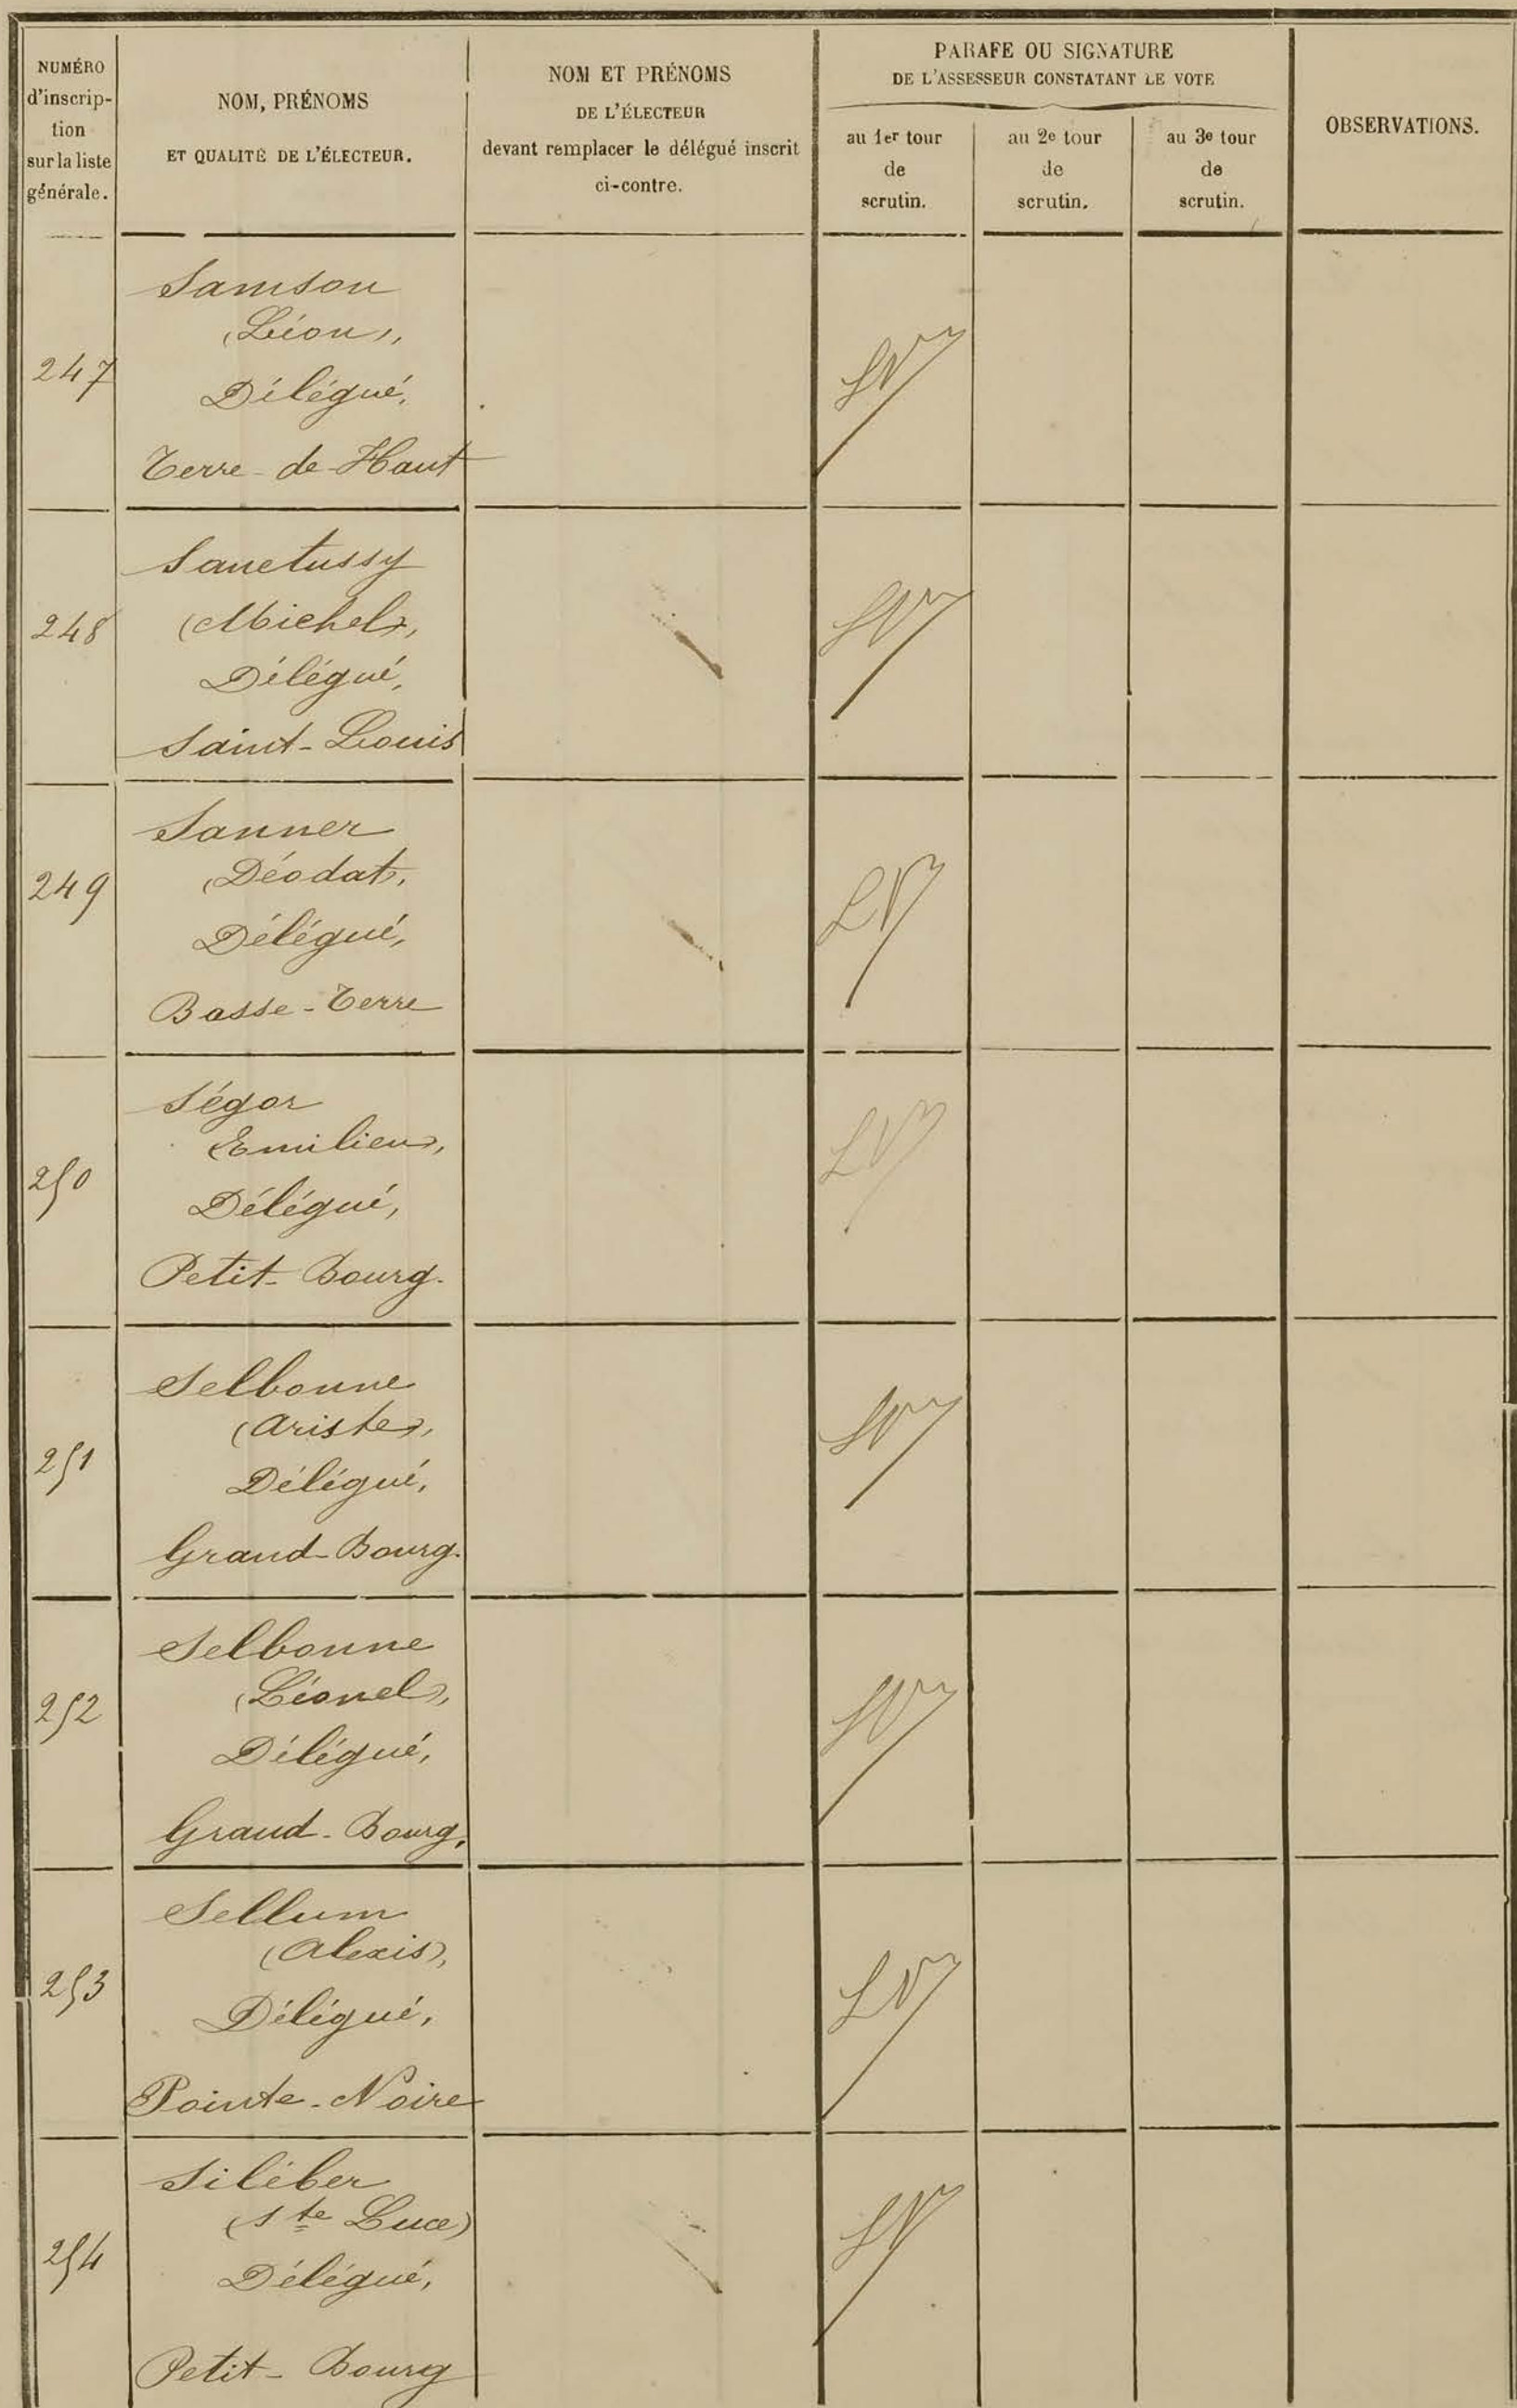 NUMÉRO
d'inscrip-
tion
sur la liste
générale.
NOM, PRÉNOMS
ET QUALITÉ DE L'ÉLECTEUR.
NOM ET PRÉNOMS
DE L'ÉLECTEUR
devant remplacer le délégué inscrit
ci-contre.
PARAFE OU SIGNATURE
DE L'ASSESSEUR CONSTATANT LE VOTE
au 1er tour
de
scrutin.
au 2e tour
de
scrutin.
au 3e tour
de
scrutin.
OBSERVATIONS.
247
Samson
(Léon),
Délégué,
Terre-de-Haut
248
Sanctussy
(Michel),
Délégué,
Saint-Louis
249
Sanner
(Déodat),
Délégué,
Basse-Terre
LV
250
Ségor
(Emilien),
Délégué,
Petit-Bourg.
LV
251
Selbonne
(Ariste),
Délégué,
Grand-Bourg.
252
Selbonne
(Léonel),
Délégué,
Grand-Bourg.
253
Sellum
(Alexis),
Délégué,
Pointe-Noire
LV
254
Siléber
(Ste Luce)
Délégué,
Petit-Bourg